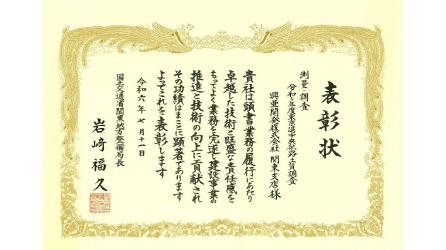 表彰状
測量・調査
令和５年度東京湾中央航路土質調査
興亜開発株式会社 関東支店 様
貴社は頭書業務の履行にあたり
卓越した技術と旺盛な責任感を
もってよく業務を完遂し建設事業の
推進と技術の向上に貢献され
その功績はまことに顕著であります
よってこれを表彰します
令和六年七月十一日
国土交通省関東地方整備局長
岩﨑福久